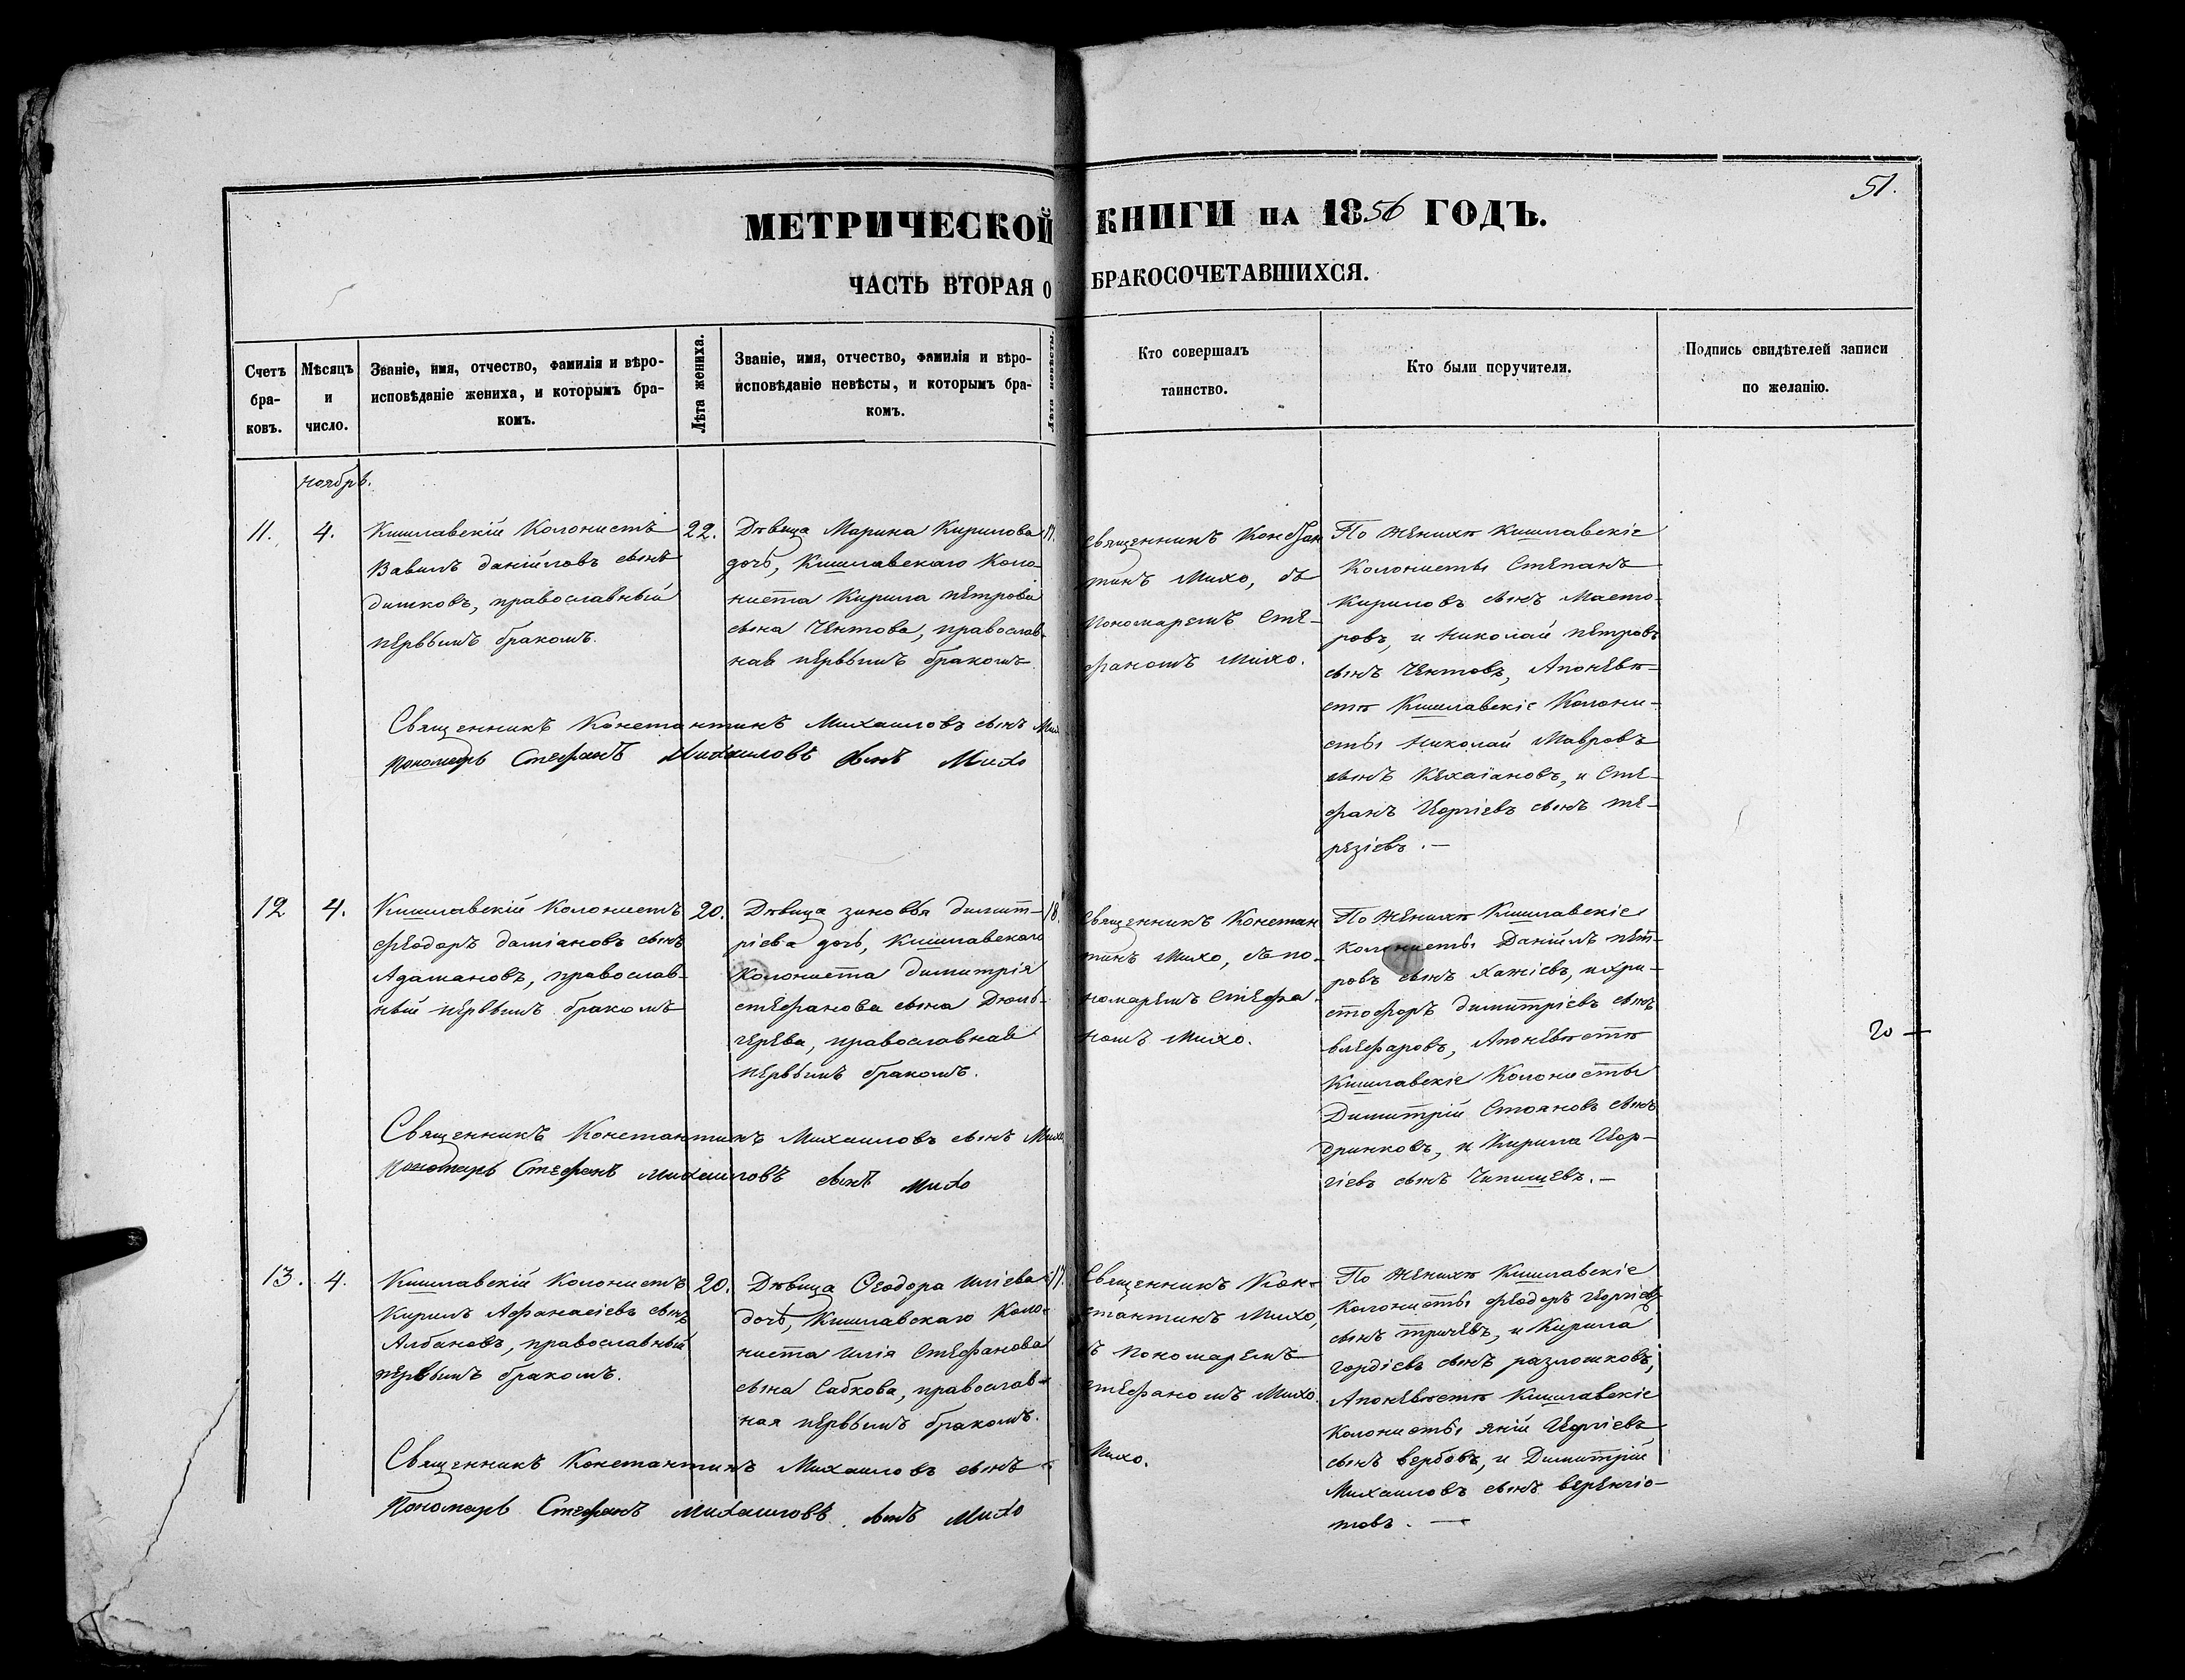 51.
МЕТРИЧЕСКОЙ КНИГИ НА 1856 ГОДЪ.
ЧАСТЬ ВТОРАЯ О БРАКОСОЧЕТАВШИХСЯ.
Счетъ
бра-
ковъ.
Мѣсяцъ
и
число.
Званіе, имя, отчество, фамилія и вѣро-
исповѣданіе жениха, и которымъ бра-
комъ.
Лѣта жениха.
Званіе, имя, отчество, фамилія и вѣро-
исповѣданіе невѣсты, и которымъ бра-
комъ.
Лѣта невѣсты.
Кто совершалъ
таинство.
Кто были поручители.
Подпись свидѣтелей записи
по желанію.
ноябрь.
11.
4.
Кишлавскій Колонистъ
Вавилъ даніиловъ сынъ
димковъ, православный
первымъ бракомъ.
22.
Дѣвица Марина Кирилова
дочь, Кишлавскаго Коло-
ниста Кирила петрова
сына Чентова, православ-
ная первымъ бракомъ
17.
священникъ Констан
тинъ Михо, съ
Пономаремъ Сте-
фаномъ Михо.
По женихѣ кишлавскіе
Колонисты Степанъ
Кириловъ сынъ Масто-
ровъ, и Николай петровъ
сынъ Чентовъ, Апоневѣ-
стѣ Кишлавскіе Колони-
сты Николай Мавровъ
сынъ Кехаіановъ, и Сте-
фанъ Георгіевъ сынъ те-
резіевъ. —
Священникъ Константинъ Михаиловъ сынъ Михо
Пономарь Стефанъ Михаиловъ сынъ Михо
12
4.
Кишлавскій Колонистъ
феодоръ даміановъ сынъ
Адамановъ, православ-
ный первымъ бракомъ
20.
Дѣвица зиновья димит-
ріева дочь, Кишлавскаго
Колониста димитрія
стефанова сына Дюль-
герева, православная
первымъ бракомъ.
18.
Священникъ Констан
тинъ Михо, съ по-
номаремъ Стефа-
номъ Михо.
По женихѣ Кишлавскіе
колонисты Даніилъ пет-
ровъ сынъ хажіевъ, и хри-
стофоръ димитріевъ сынъ
влефаровъ, Апоневѣстѣ
Кишлавскіе Колонисты
Димитрій Стояновъ сынъ
дринковъ, и Кирила Геор-
гіевъ сынъ Чипишевъ. —
20
Священникъ Константинъ Михаиловъ сынъ Михо
Пономарь Стефанъ Михаиловъ сынъ Михо
13.
4.
Кишлавскій Колонистъ
Кирилъ Афанасіевъ сынъ
Албановъ, православный
первымъ бракомъ.
20.
Дѣвица Ѳеодора иліева
дочь, Кишлавскаго Коло-
ниста илія Стефанова
сына Сабкова, православ-
ная первымъ бракомъ.
17.
Священникъ Кон-
стантинъ Михо,
съ Пономаремъ
стефаномъ Михо.
По женихѣ Кишлавскіе
Колонисты феодоръ Георгіевъ
сынъ тричевъ, и Кирила
гордіевъ сынъ разложковъ,
Апоневѣстѣ Кишлавскіе
Колонисты яній Георгіевъ
сынъ вербовъ, и Димитрій
Михаиловъ сынъ веренгіо-
товъ. —
Священникъ Константинъ Михаиловъ сынъ Михо.
Пономарь Стефанъ Михаиловъ сынъ Михо